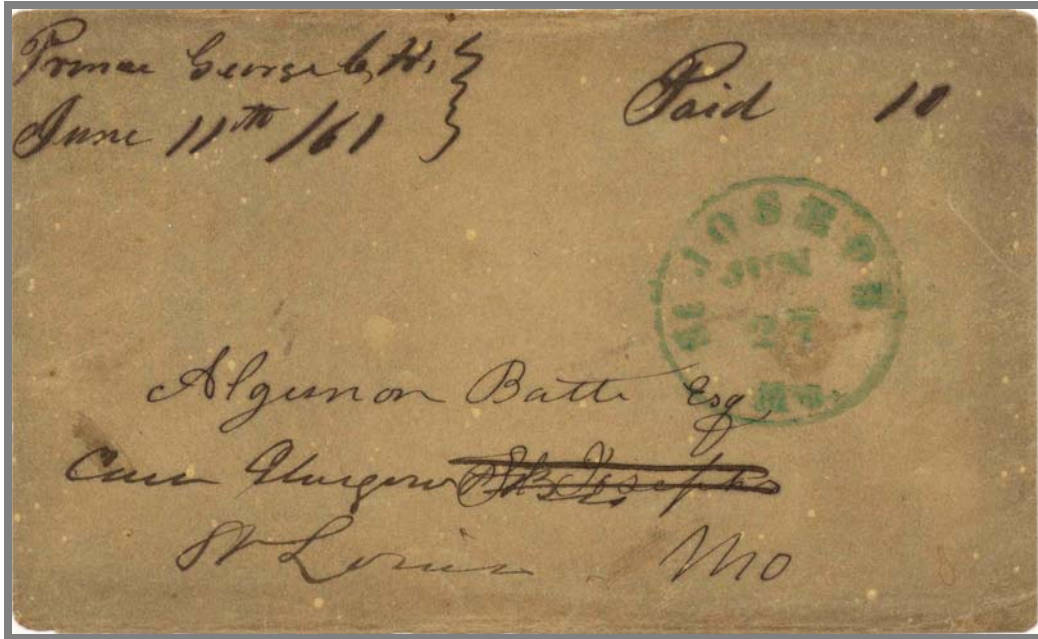 Prince George C. H.
June 11th /61
Paid 10
ST JOSEPH
JUN
27
MO.
Algernon Batte Esq
St Joseph
St Louis Mo